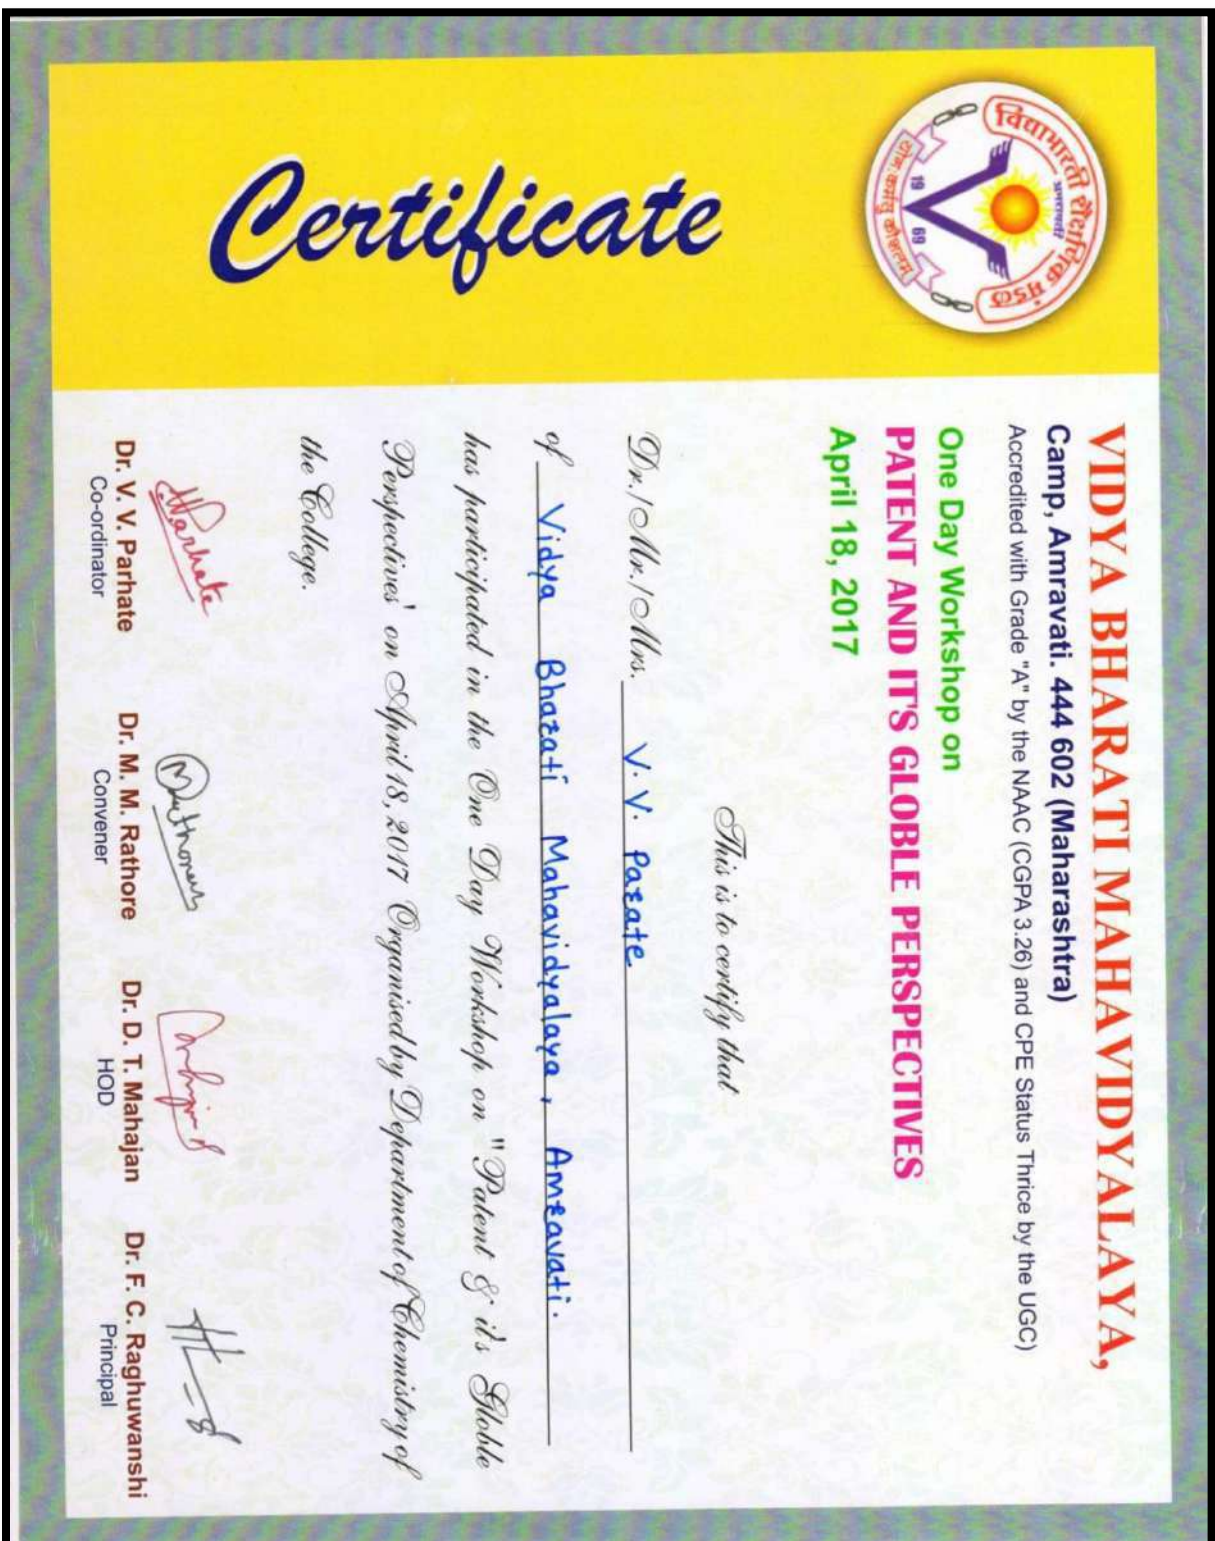 विद्याभारती शैक्षणिक मंडल
अमरावती
19 69
योग: कर्मसु कौशलम्
Certificate
VIDYA BHARATI MAHAVIDYALAYA,
Camp, Amravati. 444 602 (Maharashtra)
Accredited with Grade "A" by the NAAC (CGPA 3.26) and CPE Status Thrice by the UGC)
One Day Workshop on
PATENT AND IT'S GLOBLE PERSPECTIVES
April 18, 2017
This is to certify that
Dr./Mr./Mrs. V. V. Parate.
of Vidya Bharati Mahavidyalaya, Amravati.
has participated in the One Day Workshop on "Patent & it's Globle
Perspectives' on April 18, 2017 Organised by Department of Chemistry of
the College.
Dr. V. V. Parhate Dr. M. M. Rathore Dr. D. T. Mahajan Dr. F. C. Raghuwanshi
Co-ordinator Convener HOD Principal